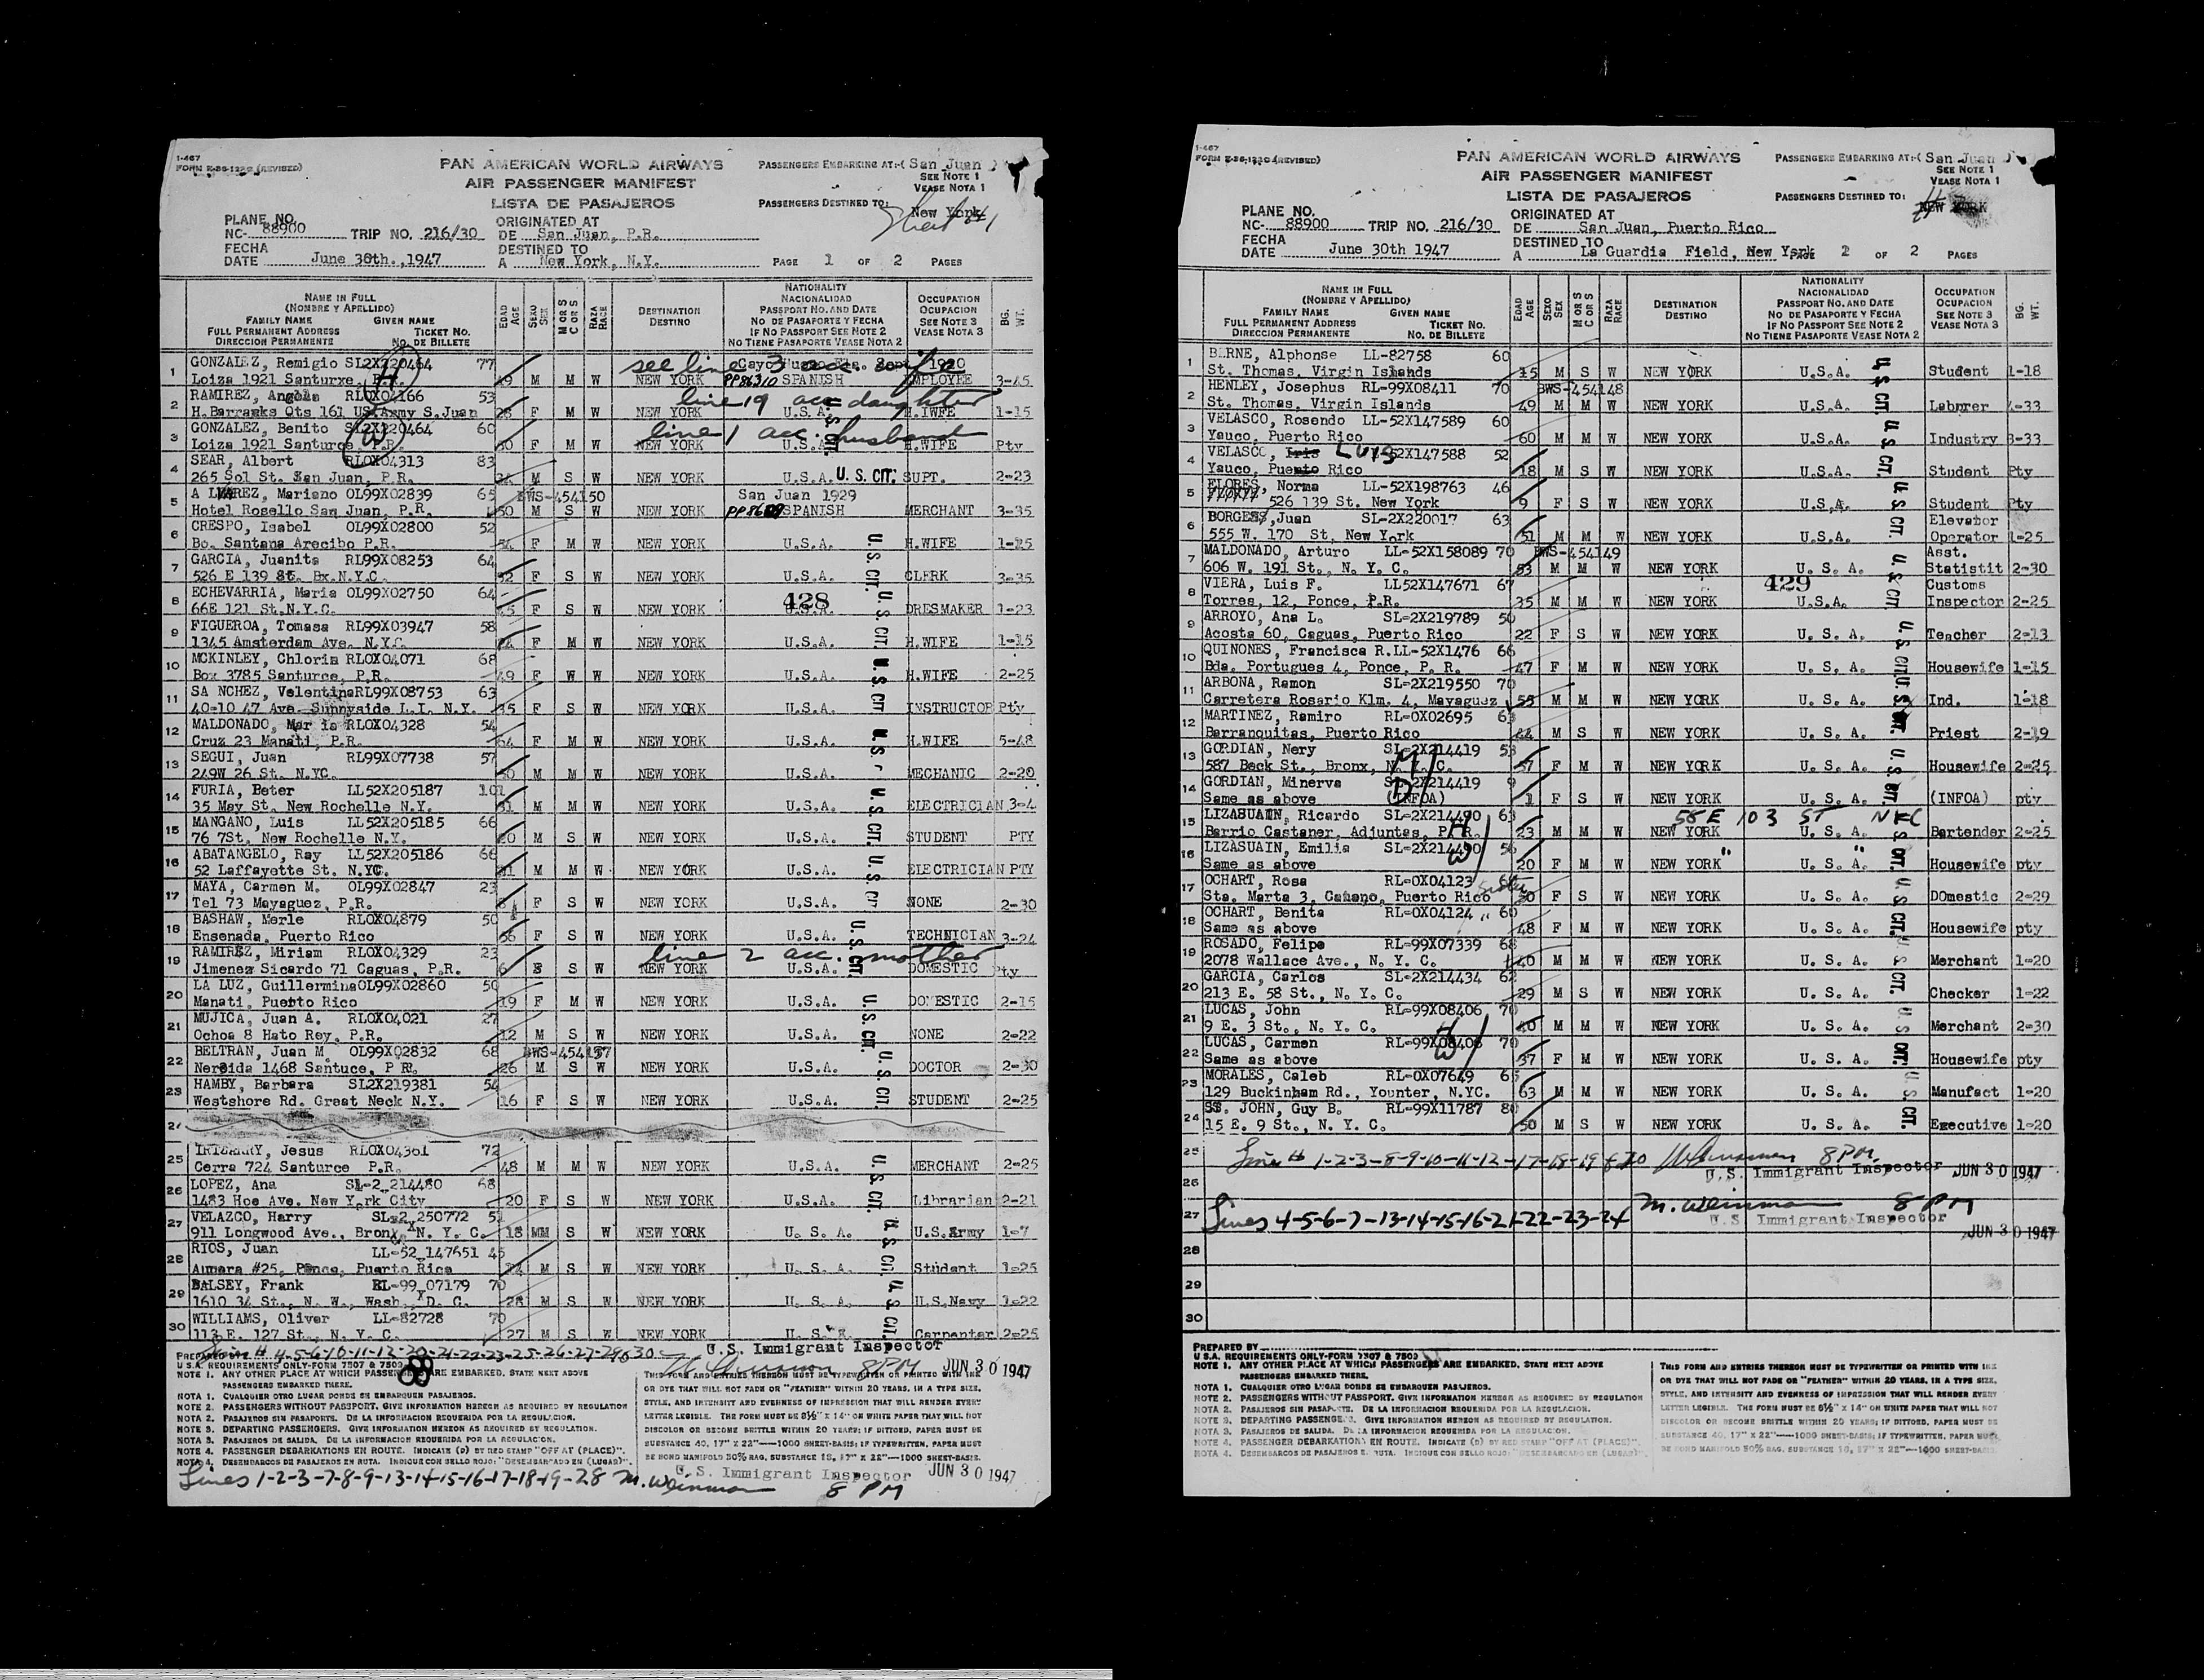 1-467
FORM E-36-122C (REVISED)
PAN AMERICAN WORLD AIRWAYS
AIR PASSENGER MANIFEST
LISTA DE PASAJEROS
PASSENGERS EMBARKING AT:-( San Juan )
SEE NOTE 1
VEASE NOTA 1
PASSENGERS DESTINED TO: New York
PLANE NO.
NC- 88900 TRIP NO. 216/30
ORIGINATED AT
DE San Juan, P.R.
FECHA
DATE June 30th.,1947
DESTINED TO
A New York, N.Y. PAGE 1 OF 2 PAGES
NAME IN FULL
(NOMBRE Y APELLIDO)
FAMILY NAME GIVEN NAME
FULL PERMANENT ADDRESS TICKET NO.
DIRECCION PERMANENTE NO. DE BILLETE
EDAD AGE
SEXO SEX
M OR S C OR S
RAZA RACE
DESTINATION
DESTINO
NATIONALITY
NACIONALIDAD
PASSPORT NO. AND DATE
NO DE PASAPORTE Y FECHA
IF NO PASSPORT SEE NOTE 2
NO TIENE PASAPORTE VEASE NOTA 2
OCCUPATION
OCUPACION
SEE NOTE 3
VEASE NOTA 3
BG. WT.
1 GONZALEZ, Remigio SL2X220464 77 see line 3
Loiza 1921 Santurxe, P.R. 49 M M W NEW YORK PP86310 SPANISH EMPLOYEE 3-45
2 RAMIREZ, Angela RLOX04166 53 line 19 acc daughter
H.Barranks Qts 161 US Army S.Juan 28 F M W NEW YORK U.S.A. H.IWFE 1-15
3 GONZALEZ, Benito SL2X220464 60 line 1 acc. husband
Loiza 1921 Santurce P.R. 30 F M W NEW YORK U.S.A. H.WIFE Pty
4 SEAR, Albert RLOX04313 83
265 Sol St. San Juan, P.R. M S W NEW YORK U.S.A. U. S. CIT. SUPT. 2-23
5 A LVAREZ, Mariano OL99X02839 65 BWS-454150 San Juan 1929
Hotel Rosello San Juan, P.R. 50 M S W NEW YORK SPANISH MERCHANT 3-35
6 CRESPO, Isabel OL99X02800 52
Bo. Santana Arecibo P.R. F M W NEW YORK U.S.A. H.WIFE 1-25
7 GARCIA, Juanita RL99X08253 64
526 E 139 St. Bx.N.Y.C. 32 F S W NEW YORK U.S.A. CLERK 3-35
8 ECHEVARRIA, Maria OL99X02750 64 428
66E 121 St.N.Y.C. F S W NEW YORK U.S.A. DRESMAKER 1-23
9 FIGUEROA, Tomasa RL99X03947 58
1345 Amsterdam Ave. N.Y.C. F M W NEW YORK U.S.A. H.WIFE 1-15
10 MCKINLEY, Chloria RLOX04071 68
Box 3785 Santurce, P.R. 49 F W W NEW YORK U.S.A. H.WIFE 2-25
11 SA NCHEZ, ValentinaRL99X08753 63
40-10 47 Ave. Sunnyside L.I. N.Y. 35 F S W NEW YORK U.S.A. INSTRUCTOR Pty
12 MALDONADO, Mar ia RLOX04328 54
Cruz 23 Manati, P.R. 64 F M W NEW YORK U.S.A. H.WIFE 5-48
13 SEGUI, Juan RL99X07738 57
249W 26 St. N.YC. 50 M M W NEW YORK U.S.A. MECHANIC 2-20
14 FURIA, Peter LL52X205187 101
35 May St. New Rochelle N.Y. 31 M M W NEW YORK U.S.A. ELECTRICIAN 3-4
15 MANGANO, Luis LL52X205185 66
76 7St. New Rochelle N.Y. 20 M S W NEW YORK U.S.A. STUDENT PTY
16 ABATANGELO, Ray LL52X205186 66
52 Laffayette St. N.YC. 31 M M W NEW YORK U.S.A. ELECTRICIAN PTY
17 MAYA, Carmen M. OL99X02847 23
Tel 73 Mayaguez, P.R. F S W NEW YORK U.S.A. NONE 2-30
18 BASHAW, Merle RLOX04879 50
Ensenada, Puerto Rico 56 F S W NEW YORK U.S.A. TECHNICIAN 3-24
19 RAMIREZ, Miriam RLOX04329 23 line 2 acc. mother
Jimenez Sicardo 71 Caguas, P.R. 6 S W NEW YORK U.S.A. DOMESTIC Pty.
20 LA LUZ, GuillerminaOL99X02860 50
Manati, Puerto Rico 19 F M W NEW YORK U.S.A. DOMESTIC 2-15
21 MUJICA, Juan A. RLOX04021 27
Ochoa 8 Hato Rey, P.R. 12 M S W NEW YORK U.S.A. NONE 2-22
22 BELTRAN, Juan M. OL99X02832 68
Nereida 1468 Santuce, P R. 26 M S W NEW YORK U.S.A. DOCTOR 2-30
23 HAMBY, Barbara SL2X219381 54
Westshore Rd. Great Neck N.Y. 16 F S W NEW YORK U.S.A. STUDENT 2-25
25 IRIZARRY, Jesus RLOX04361 72
Cerra 724 Santurce P.R. 48 M M W NEW YORK U.S.A. MERCHANT 2-25
26 LOPEZ, Ana SL-2 214480 68
1483 Hoe Ave. New York City 20 F S W NEW YORK U.S.A. Librarian 2-21
27 VELAZCO, Harry SL-2 250772 51
911 Longwood Ave., Bronx, N. Y. C. 18 MM S W NEW YORK U. S. A. U.S.Army 1-7
28 RIOS, Juan LL-52 147651 45
Aumara #25, Ponce, Puerto Rico M S W NEW YORK U. S. A. Student 1-25
29 BALSEY, Frank RL-99 07179 70
1610 34 St., N. W., Wash., D. C. 28 M S W NEW YORK U. S. A. U.S.Navy 1-22
30 WILLIAMS, Oliver LL-82728 70
113 E. 127 St., N. Y. C. 27 M S W NEW YORK U. S. A. Carpenter 2-25
PREPARED BY 4-5-6-10-11-12-20-21-22-23-25-26-27-29 30 U.S. Immigrant Inspector
8 PM JUN 30 1947
U S A. REQUIREMENTS ONLY-FORM 7507 & 7502
NOTE 1. ANY OTHER PLACE AT WHICH PASSENGERS ARE EMBARKED. STATE NEXT ABOVE
PASSENGERS EMBARKED THERE.
NOTA 1. CUALQUIER OTRO LUGAR DONDE SE EMBARQUEN PASAJEROS.
NOTE 2. PASSENGERS WITHOUT PASSPORT. GIVE INFORMATION HEREON AS REQUIRED BY REGULATION
NOTA 2. PASAJEROS SIN PASAPORTE. DE LA INFORMACION REQUERIDA POR LA REGULACION.
NOTE 3. DEPARTING PASSENGERS. GIVE INFORMATION HEREON AS REQUIRED BY REGULATION.
NOTA 3. PASAJEROS DE SALIDA. DE LA INFORMACION REQUERIDA POR LA REGULACION.
NOTE 4. PASSENGER DEBARKATIONS EN ROUTE. INDICATE (D) BY RED STAMP "OFF AT (PLACE)".
NOTA 4. DESEMBARCOS DE PASAJEROS EN RUTA. INDIQUE CON SELLO ROJO: "DESEMBARCADO EN (LUGAR)".
THIS FORM AND ENTRIES THEREON MUST BE TYPEWRITTEN OR PRINTED WITH INK
OR DYE THAT WILL NOT FADE OR "FEATHER" WITHIN 20 YEARS, IN A TYPE SIZE,
STYLE, AND INTENSITY AND EVENNESS OF IMPRESSION THAT WILL RENDER EVERY
LETTER LEGIBLE. THE FORM MUST BE 8½" X 14" ON WHITE PAPER THAT WILL NOT
DISCOLOR OR BECOME BRITTLE WITHIN 20 YEARS; IF DITTOED, PAPER MUST BE
SUBSTANCE 40, 17" X 22"—1000 SHEET-BASIS; IF TYPEWRITTEN, PAPER MUST
BE BOND MANIFOLD 50% RAG, SUBSTANCE 16, 17" X 22"—1000 SHEET-BASIS.
U.S. Immigrant Inspector JUN 30 1947
Lines 1-2-3-7-8-9-13-14-15-16-17-18-19-28 M. Weinman 8 PM
1-467
FORM E-36-122C (REVISED)
PAN AMERICAN WORLD AIRWAYS
AIR PASSENGER MANIFEST
LISTA DE PASAJEROS
PASSENGERS EMBARKING AT:-( San Juan )
SEE NOTE 1
VEASE NOTA 1
PASSENGERS DESTINED TO: NEW YORK
PLANE NO.
NC- 88900 TRIP NO. 216/30
ORIGINATED AT
DE San Juan, Puerto Rico
FECHA
DATE June 30th 1947
DESTINED TO
A La Guardia Field, New York PAGE 2 OF 2 PAGES
NAME IN FULL
(NOMBRE Y APELLIDO)
FAMILY NAME GIVEN NAME
FULL PERMANENT ADDRESS TICKET NO.
DIRECCION PERMANENTE NO. DE BILLETE
EDAD AGE
SEXO SEX
M OR S C OR S
RAZA RACE
DESTINATION
DESTINO
NATIONALITY
NACIONALIDAD
PASSPORT NO. AND DATE
NO DE PASAPORTE Y FECHA
IF NO PASSPORT SEE NOTE 2
NO TIENE PASAPORTE VEASE NOTA 2
OCCUPATION
OCUPACION
SEE NOTE 3
VEASE NOTA 3
BG. WT.
1 BERNE, Alphonse LL-82758 60
St. Thomas, Virgin Islands 15 M S W NEW YORK U.S.A. Student 1-18
2 HENLEY, Josephus RL-99X08411 70 BWS-454148
St. Thomas, Virgin Islands 49 M M W NEW YORK U.S.A. Laborer 4-33
3 VELASCO, Rosendo LL-52X147589 60
Yauco, Puerto Rico 60 M M W NEW YORK U.S.A. Industry 3-33
4 VELASCO, Iris LUIS LL-52X147588 52
Yauco, Puerto Rico 18 M S W NEW YORK U.S.A. Student Pty
5 FLORES, Norma LL-52X198763 46
526 139 St. New York 9 F S W NEW YORK U.S.A. Student Pty
6 BORGES, Juan SL-2X220017 63 Elevator
555 W. 170 St, New York 51 M M W NEW YORK U.S.A. Operator 1-25
7 MALDONADO, Arturo LL-52X158089 70 BWS-454149 Asst.
606 W. 191 St., N. Y. C. 53 M M W NEW YORK U. S. A. Statistit 2-30
8 VIERA, Luis F. LL52X147671 67 429 Customs
Torres, 12, Ponce, P.R. 35 M M W NEW YORK U.S.A. Inspector 2-25
9 ARROYO, Ana L. SL-2X219789 50
Acosta 60, Caguas, Puerto Rico 22 F S W NEW YORK U. S. A. Teacher 2-13
10 QUINONES, Francisca R.LL-52X1476 66
Bda. Portugues 4, Ponce, P. R. 47 F M W NEW YORK U. S. A. Housewife 1-15
11 ARBONA, Ramon SL-2X219550 70
Carretera Rosario Klm. 4, Mayaguez 55 M M W NEW YORK U. S. A. Ind. 1-18
12 MARTINEZ, Ramiro RL-0X02695 63
Barranquitas, Puerto Rico 44 M S W NEW YORK U. S. A. Priest 2-19
13 GORDIAN, Nery SL-2X214419 53
587 Back St., Bronx, N. Y. C. 37 F M W NEW YORK U. S. A. Housewife 2-25
14 GORDIAN, Minerva SL-2X214419 9
Same as above (INFOA) 1 F S W NEW YORK U. S. A. (INFOA) pty
15 LIZASUAIN, Ricardo SL-2X214490 63 58 E 103 ST NYC
Barrio Castaner, Adjuntas, P.R. 23 M M W NEW YORK U. S. A. Bartender 2-25
16 LIZASUAIN, Emilia SL-2X214490 56
Same as above 20 F M W NEW YORK U. S. A. Housewife pty
17 OCHART, Rosa RL-0X04123 sister
Sta. Marta 3, Camano, Puerto Rico 50 F S W NEW YORK U. S. A. DOmestic 2-29
18 OCHART, Benita RL-0X04124 " 60
Same as above 48 F M W NEW YORK U. S. A. Housewife pty
19 ROSADO, Felipe RL-99X07339 68
2078 Wallace Ave., N. Y. C. 40 M M W NEW YORK U. S. A. Merchant 1-20
20 GARCIA, Carlos SL-2X214434 62
213 E. 58 St., N. Y. C. 29 M S W NEW YORK U. S. A. Checker 1-22
21 LUCAS, John RL-99X08406 70
9 E. 3 St., N. Y. C. 40 M M W NEW YORK U. S. A. Merchant 2-30
22 LUCAS, Carmen RL-99X08406 70
Same as above 37 F M W NEW YORK U. S. A. Housewife pty
23 MORALES, Caleb RL-0X07649 65
129 Buckinham Rd., Younter, N.YC. 63 M M W NEW YORK U. S. A. Manufact 1-20
24 SS. JOHN, Guy B. RL-99X11787 80
15 E. 9 St., N. Y. C. 50 M S W NEW YORK U. S. A. Executive 1-20
25 Line # 1-2-3-8-9-10-11-12-17-18-19 & 20 8 PM.
U.S. Immigrant Inspector JUN 30 1947
26
27 Lines 4-5-6-7-13-14-15-16-21-22-23-24 M. Weinman 8 PM
U.S. Immigrant Inspector
JUN 30 1947
28
29
30
PREPARED BY
U S A. REQUIREMENTS ONLY-FORM 7507 & 7502
NOTE 1. ANY OTHER PLACE AT WHICH PASSENGERS ARE EMBARKED. STATE NEXT ABOVE
PASSENGERS EMBARKED THERE.
NOTA 1. CUALQUIER OTRO LUGAR DONDE SE EMBARQUEN PASAJEROS.
NOTE 2. PASSENGERS WITHOUT PASSPORT. GIVE INFORMATION HEREON AS REQUIRED BY REGULATION
NOTA 2. PASAJEROS SIN PASAPORTE. DE LA INFORMACION REQUERIDA POR LA REGULACION.
NOTE 3. DEPARTING PASSENGERS. GIVE INFORMATION HEREON AS REQUIRED BY REGULATION.
NOTA 3. PASAJEROS DE SALIDA. DE LA INFORMACION REQUERIDA POR LA REGULACION.
NOTE 4. PASSENGER DEBARKATIONS EN ROUTE. INDICATE (D) BY RED STAMP "OFF AT (PLACE)".
NOTA 4. DESEMBARCOS DE PASAJEROS E. RUTA. INDIQUE CON SELLO ROJO: "DESEMBARCADO EN (LUGAR)".
THIS FORM AND ENTRIES THEREON MUST BE TYPEWRITTEN OR PRINTED WITH INK
OR DYE THAT WILL NOT FADE OR "FEATHER" WITHIN 20 YEARS, IN A TYPE SIZE,
STYLE, AND INTENSITY AND EVENNESS OF IMPRESSION THAT WILL RENDER EVERY
LETTER LEGIBLE. THE FORM MUST BE 8½" X 14" ON WHITE PAPER THAT WILL NOT
DISCOLOR OR BECOME BRITTLE WITHIN 20 YEARS; IF DITTOED, PAPER MUST BE
SUBSTANCE 40, 17" X 22"—1000 SHEET-BASIS; IF TYPEWRITTEN, PAPER MUST
BE BOND MANIFOLD 50% RAG, SUBSTANCE 16, 17" X 22"—1000 SHEET-BASIS.